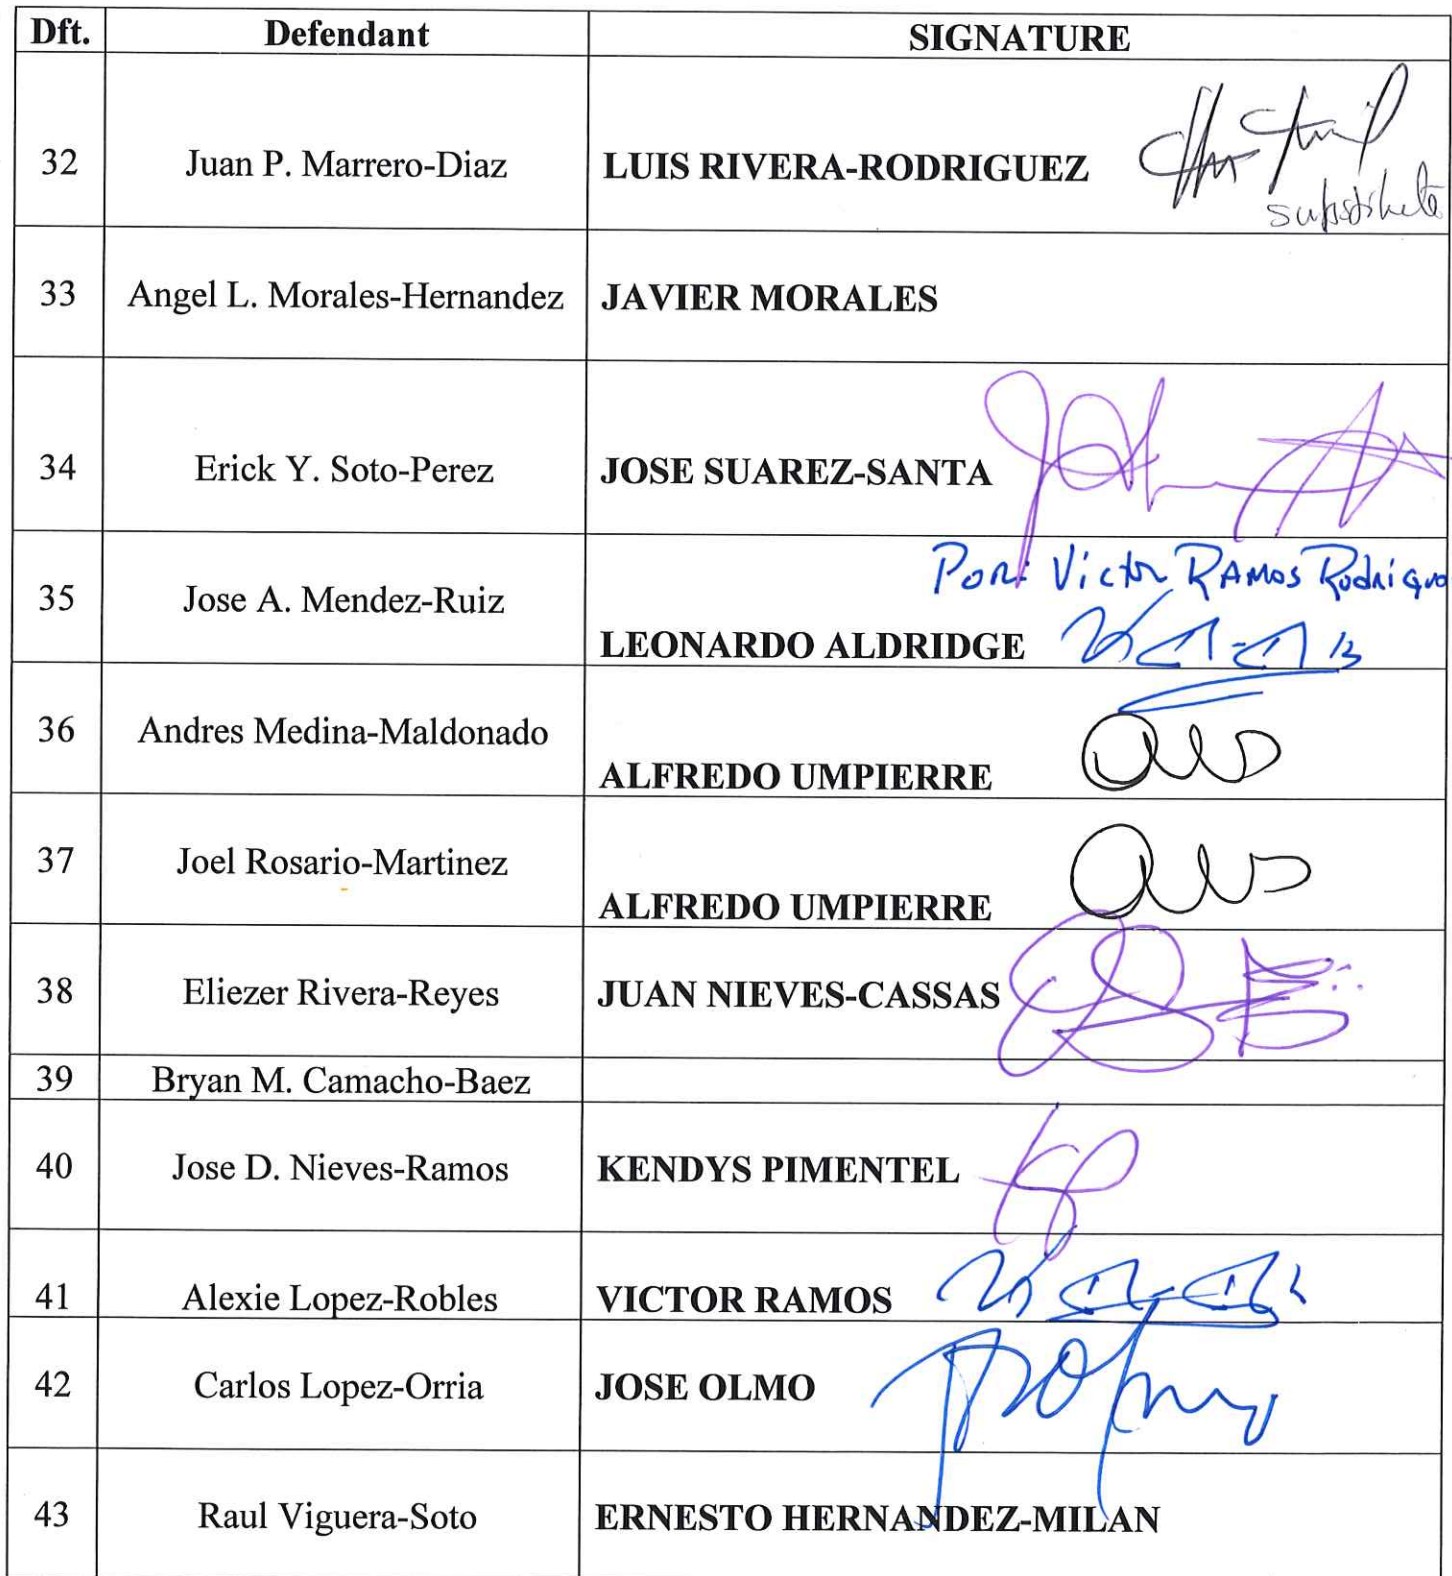 Dft. Defendant SIGNATURE
32 Juan P. Marrero-Diaz LUIS RIVERA-RODRIGUEZ
substitute
33 Angel L. Morales-Hernandez JAVIER MORALES
34 Erick Y. Soto-Perez JOSE SUAREZ-SANTA
Por: Victor RAMOS Rodrigue
35 Jose A. Mendez-Ruiz
LEONARDO ALDRIDGE
36 Andres Medina-Maldonado
ALFREDO UMPIERRE
37 Joel Rosario-Martinez
ALFREDO UMPIERRE
38 Eliezer Rivera-Reyes JUAN NIEVES-CASSAS
39 Bryan M. Camacho-Baez
40 Jose D. Nieves-Ramos KENDYS PIMENTEL
41 Alexie Lopez-Robles VICTOR RAMOS
42 Carlos Lopez-Orria JOSE OLMO
43 Raul Viguera-Soto ERNESTO HERNANDEZ-MILAN